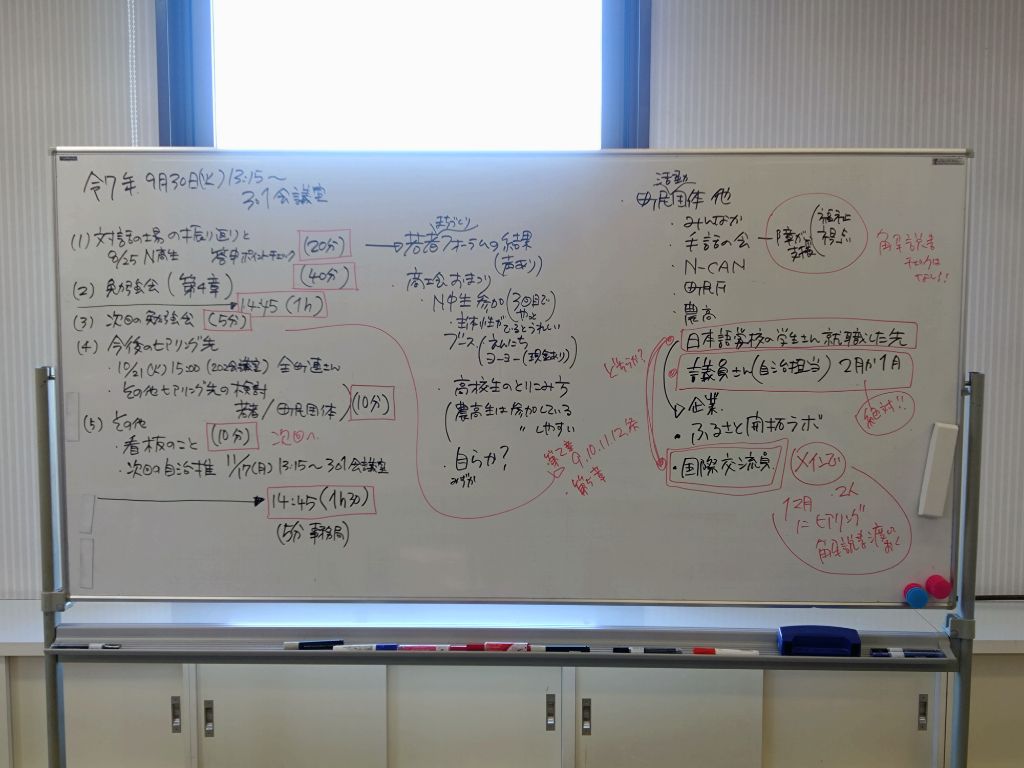 令7年 9月30日(火) 13:15〜
301会議室
(1) 対話の場の振り返りと (20分)
9/25 N高生 答申ポイントチェック
(40分)
(2) 勉強会 (第4章)
14:45 (1h)
(3) 次回の勉強会 (5分)
(4) 今後のヒアリング先
・10/21(火) 15:00 (202会議室) 全町連さん
・その他ヒアリング先の検討
若者/町民団体/ (10分)
(5) その他
・看板のこと (10分) 次回へ
・次回の自治推 11/17(月) 13:15〜301会議室
14:45 (1h30)
(5分 事務局)
まちづくり
若者フォーラムの結果
(声あり)
・商工会おまつり
・N中生参加 (3回目で
やっと
主体性がでるとうれしい
ブース (えんにち
ヨーヨー (現金あり)
・高校生のとりこみ方
(農高生は参加している
〃 しやすい
・自らか?
みずか
・第2章 9.10.11.12条
・第5章
活動
・町民団体 他
・みんなか
・手話の会 ー 障がい
支援
(福祉
視点)
・N-CAN
・町民F
・農高
・日本語学校の学生さん 就職した先
・議員さん(自治担当) 2月か1月
絶対!!
・企業
・ふるさと開拓ラボ
・国際交流員 メインで
どちらか?
12月
にヒアリング
解説書渡して
おく
解説書
チェックは
なし!!